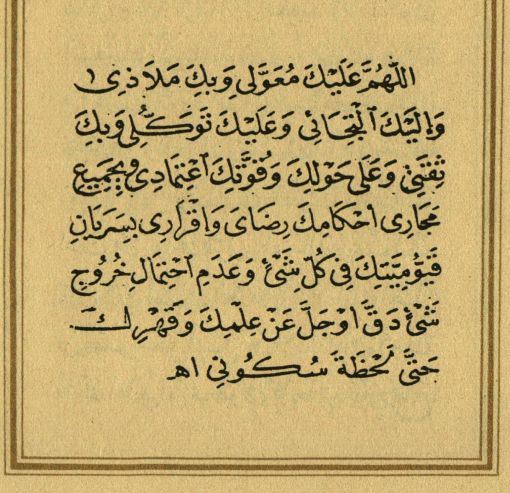 اللّٰهُمَّ عَلَيْكَ مُعَوَّلِى وَبِكَ مَلَاذِى ١
وَاِلَيْكَ ٱلْتِجَائِى وَعَلَيْكَ تَوَكُّلِى وَبِكَ
ثِقَتِى وَعَلَى حَوْلِكَ وَقُوَّتِكَ اعْتِمَادِى وَبِجَمِيعِ
مَجَارِى اَحْكَامِكَ رِضَاىَ وَاِقْرَارِى بِسَرَيَانِ
قَيُّومِيَّتِكَ فِى كُلِّ شَىْءٍ وَعَدَمِ احْتِمَالِ خُرُوجِ
شَىْءٍ دَقَّ اَوْ جَلَّ عَنْ عِلْمِكَ وَقَهْرِكَ
حَتَّى لَحْظَةَ سُكُونِى اه